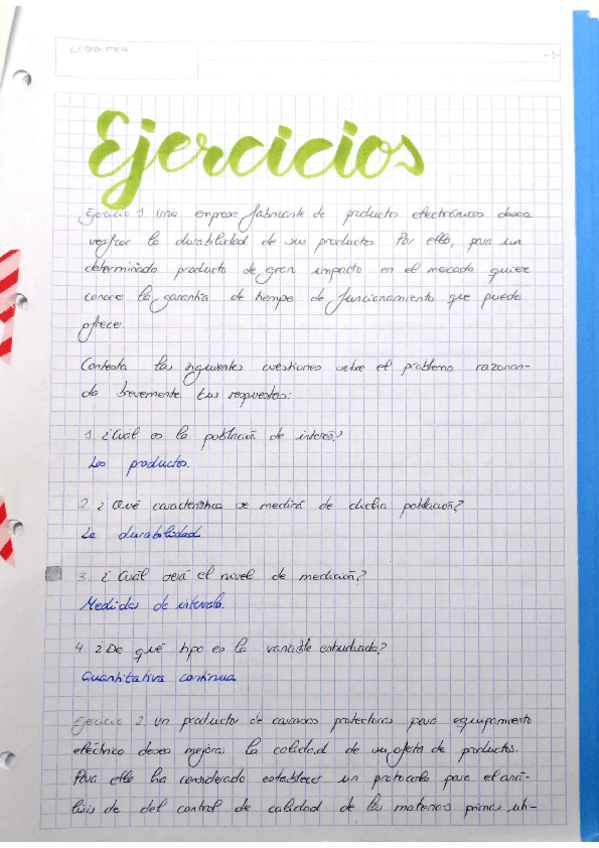 ESTADÍSTICA
-1-
Ejercicios
Ejercicio 1 Una empresa fabricante de productos electrónicos desea
verificar la durabilidad de sus productos. Por ello, para un
determinado producto de gran impacto en el mercado quiere
conocer la garantía de tiempo de funcionamiento que puede
ofrecer.
Contesta las siguientes cuestiones sobre el problema razonan-
do brevemente tus respuestas:
1. ¿Cuál es la población de interés?
Los productos.
2. ¿Qué característica se medirá de dicha población?
La durabilidad
3. ¿Cuál será el nivel de medición?
Medidas de intervalo.
4. ¿De qué tipo es la variable estudiada?
Cuantitativa continua
Ejercicio 2 Un productor de carcasas protectoras para equipamiento
eléctrico desea mejorar la calidad de su oferta de productos.
Para ello ha considerado establecer un protocolo para el aná-
lisis de del control de calidad de las materias primas uti-